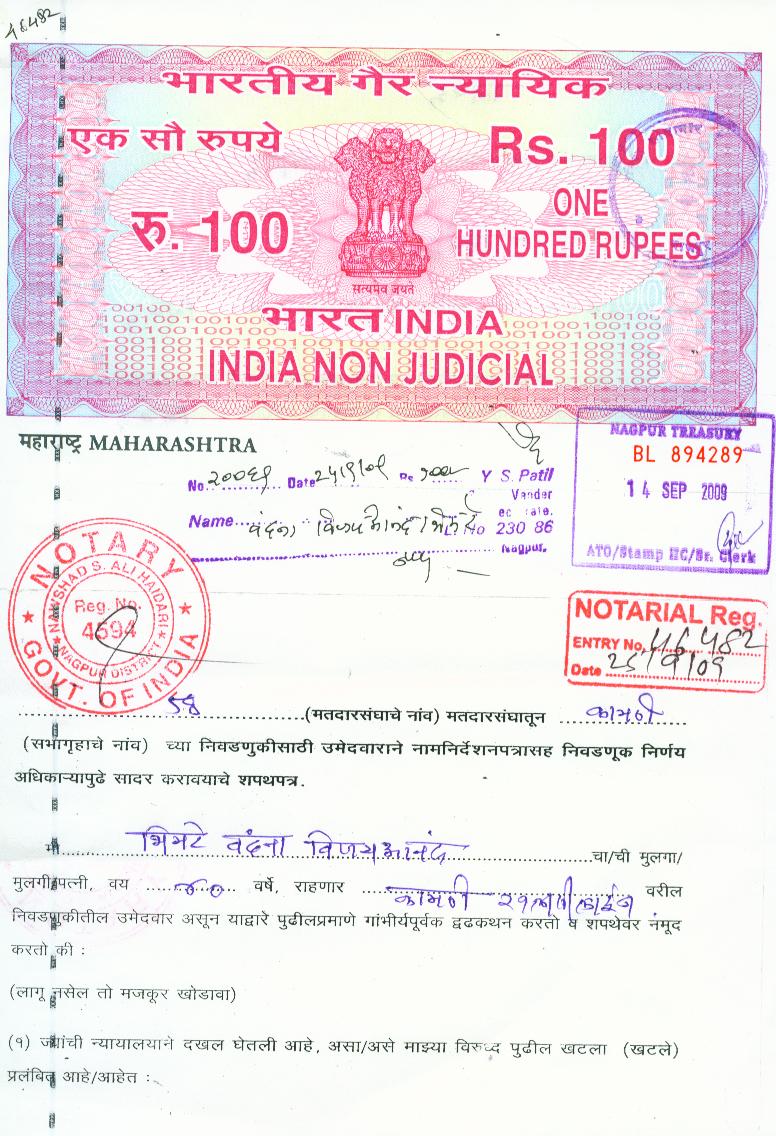 46482
भारतीय गैर न्यायिक
एक सौ रुपये
Rs. 100
रु. 100
ONE
HUNDRED RUPEES
सत्यमेव जयते
भारत INDIA
INDIA NON JUDICIAL
महाराष्ट्र MAHARASHTRA
NAGPUR TREASURY
BL 894289
14 SEP 2009
ATO/Stamp HC/Sr. Clerk
No. Date Rs Y S. Patil
Vander
Name वंदना विजयआनंद भिमटे L. No 230 86
Nagpur.
NOTARY
NAUSHAD S. ALI HAIDARI
Reg. No.
4594
NAGPUR DISTRICT
GOVT. OF INDIA
NOTARIAL Reg.
ENTRY No. 46482
Date 25/9/09
58 (मतदारसंघाचे नांव) मतदारसंघातून कामठी
(सभागृहाचे नांव) च्या निवडणुकीसाठी उमेदवाराने नामनिर्देशनपत्रासह निवडणूक निर्णय
अधिकाऱ्यापुढे सादर करावयाचे शपथपत्र.
मी भिमटे वंदना विजयआनंद चा/ची मुलगा/
मुलगी/पत्नी, वय ४० वर्षे, राहणार कामठी वरील
निवडणुकीतील उमेदवार असून याद्वारे पुढीलप्रमाणे गांभीर्यपूर्वक द्वढकथन करतो व शपथेवर नंमूद
करतो की :
(लागू नसेल तो मजकूर खोडावा)
(१) ज्यांची न्यायालयाने दखल घेतली आहे, असा/असे माझ्या विरुध्द पुढील खटला (खटले)
प्रलंबित आहे/आहेत :